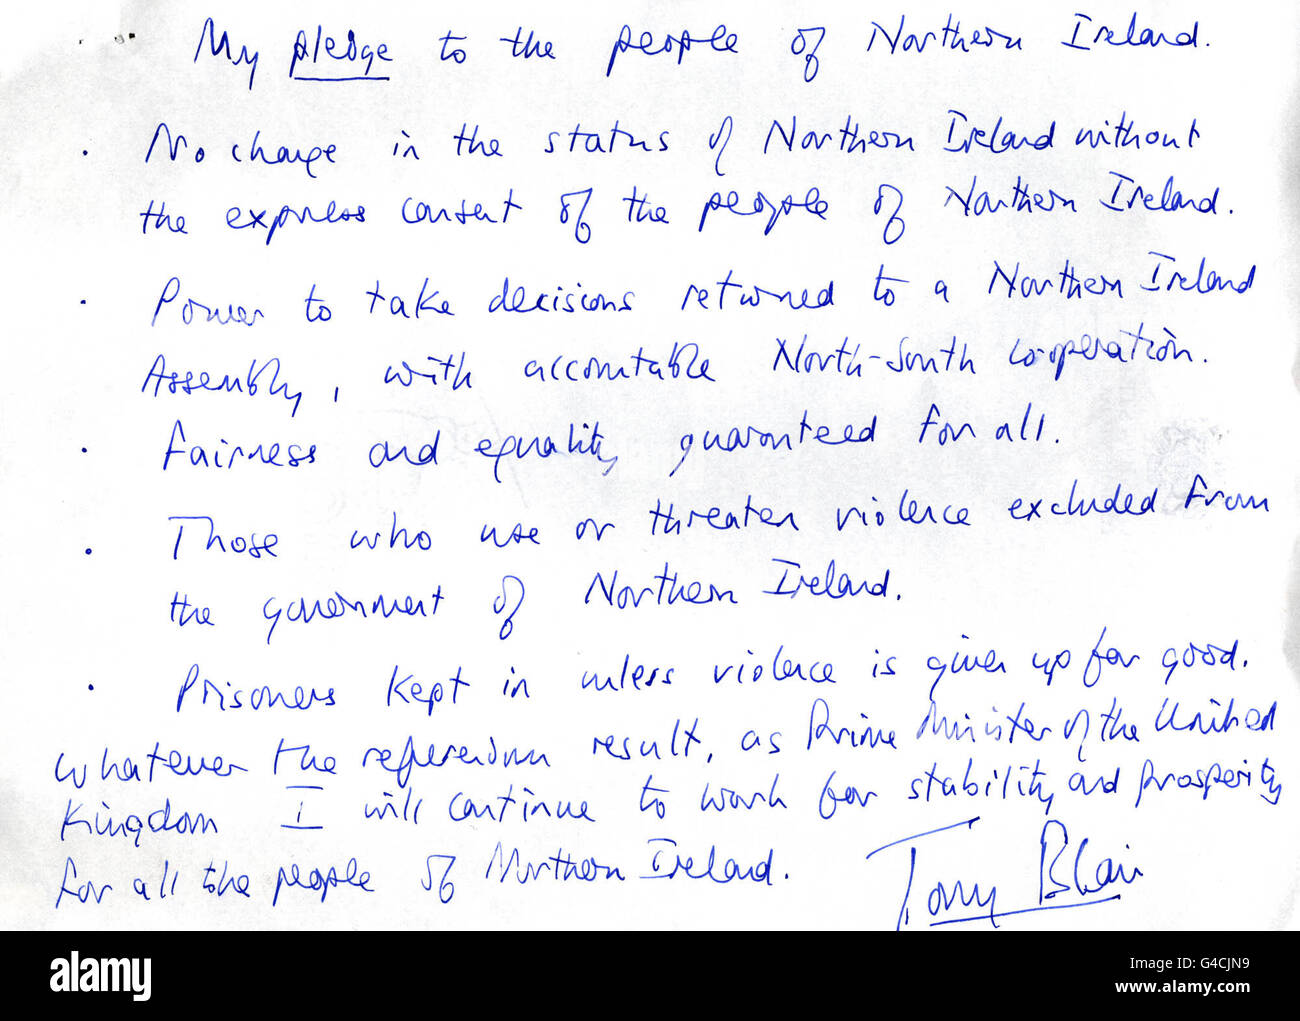 My pledge to the people of Northern Ireland.
· No change in the status of Northern Ireland without
the express consent of the people of Northern Ireland.
· Power to take decisions returned to a Northern Ireland
Assembly, with accountable North-South co-operation.
· Fairness and equality guaranteed for all.
· Those who use or threaten violence excluded from
the government of Northern Ireland.
· Prisoners kept in unless violence is given up for good.
Whatever the referendum result, as Prime Minister of the United
Kingdom I will continue to work for stability and prosperity
for all the people of Northern Ireland.
Tony Blair
alamy stock photo
G4CJN9
www.alamy.com